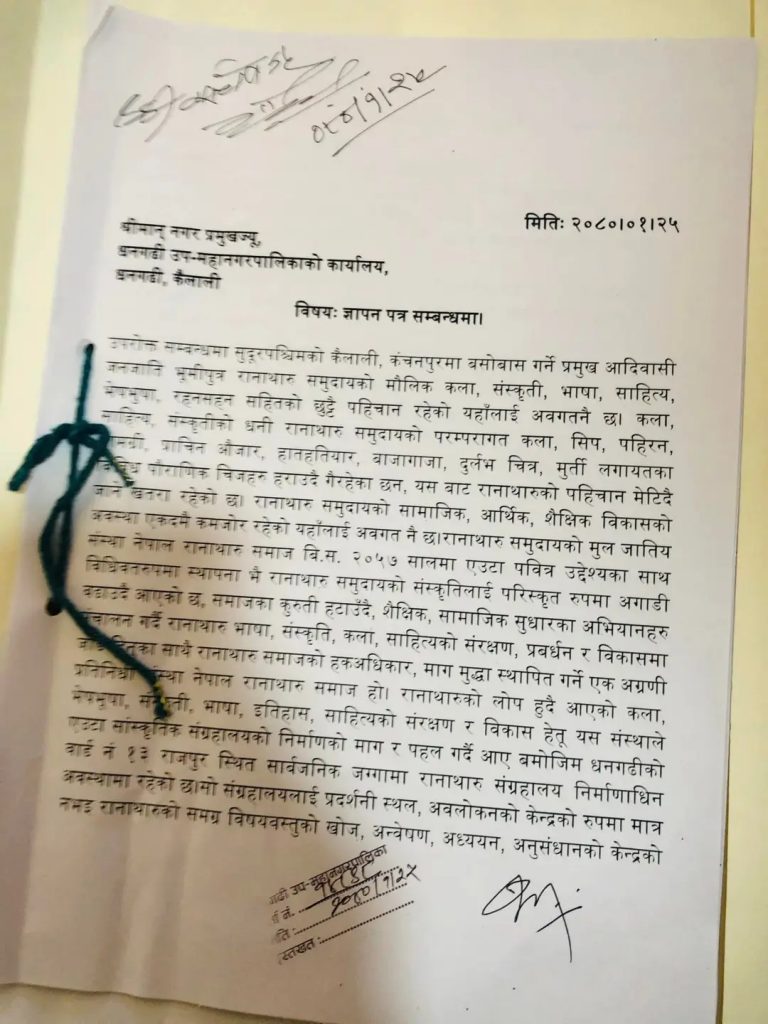 ०८०।१।२५
मितिः २०८०।०१।२५
श्रीमान् नगर प्रमुखज्यू,
धनगढी उप-महानगरपालिकाको कार्यालय,
धनगढी, कैलाली
विषयः ज्ञापन पत्र सम्बन्धमा।
उपरोक्त सम्बन्धमा सुदूरपश्चिमको कैलाली, कंचनपुरमा बसोबास गर्ने प्रमुख आदिवासी
जनजाति भूमीपुत्र रानाथारु समुदायको मौलिक कला, संस्कृती, भाषा, साहित्य,
भेषभुषा, रहनसहन सहितको छुट्टै पहिचान रहेको यहाँलाई अवगतनै छ। कला,
साहित्य, संस्कृतीको धनी रानाथारु समुदायको परम्परागत कला, सिप, पहिरन,
प्राचिन औजार, हातहतियार, बाजागाजा, दुर्लभ चित्र, मुर्ती लगायतका
पौराणिक चिजहरु हराउदै गैरहेका छन, यस बाट रानाथारुको पहिचान मेटिदै
जाने खतरा रहेको छ। रानाथारु समुदायको सामाजिक, आर्थिक, शैक्षिक विकासको
अवस्था एकदमै कमजोर रहेको यहाँलाई अवगत नै छ।रानाथारु समुदायको मुल जातिय
संस्था नेपाल रानाथारु समाज बि.स. २०५७ सालमा एउटा पवित्र उद्देश्यका साथ
विधिवतरुपमा स्थापना भै रानाथारु समुदायको संस्कृतिलाई परिस्कृत रुपमा अगाडी
बढाउदै आएको छ, समाजका कुरुती हटाउदै, शैक्षिक, सामाजिक सुधारका अभियानहरु
संचालन गर्दै रानाथारु भाषा, संस्कृति, कला, साहित्यको संरक्षण, प्रवर्धन र विकासमा
साथै रानाथारु समाजको हकअधिकार, माग मुद्धा स्थापित गर्ने एक अग्रणी
प्रतिनिधी संस्था नेपाल रानाथारु समाज हो। रानाथारुको लोप हुदै आएको कला,
भेषभुषा, संस्कृती, भाषा, इतिहास, साहित्यको संरक्षण र विकास हेतू यस संस्थाले
एउटा सांस्कृतिक संग्रहालयको निर्माणको माग र पहल गर्दै आए बमोजिम धनगढीको
वार्ड नं १३ राजपुर स्थित सार्वजनिक जग्गामा रानाथारु संग्रहालय निर्माणाधिन
अवस्थामा रहेको छ।सो संग्रहालयलाई प्रदर्शनी स्थल, अवलोकनको केन्द्रको रुपमा मात्र
नभइ रानाथारुको समग्र विषयवस्तुको खोज, अन्वेषण, अध्ययन, अनुसंधानको केन्द्रको
उप-महानगरपालिका
नं.
२०८०।१।२५